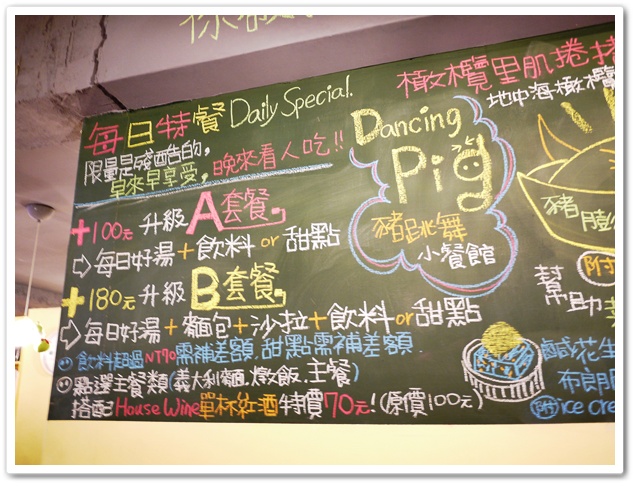 每日特餐 Daily Special.
限量是殘酷的,
早來早享受, 晚來看人吃!!
+100元 升級 A套餐.
⇨ 每日好湯+飲料 or 甜點
+180元 升級 B套餐.
⇨ 每日好湯+麵包+沙拉+飲料or甜點
飲料超過NT90需補差額.甜點需補差額.
點選主餐類(義大利麵.燉飯.主餐)
搭配House Wine單杯紅酒特價70元!(原價100元)
Dancing
Pig
豬跳舞
小餐館
橄欖里肌捲
地中海橄欖
豬
附
幫助
鹹花生
布朗
附 ice cre